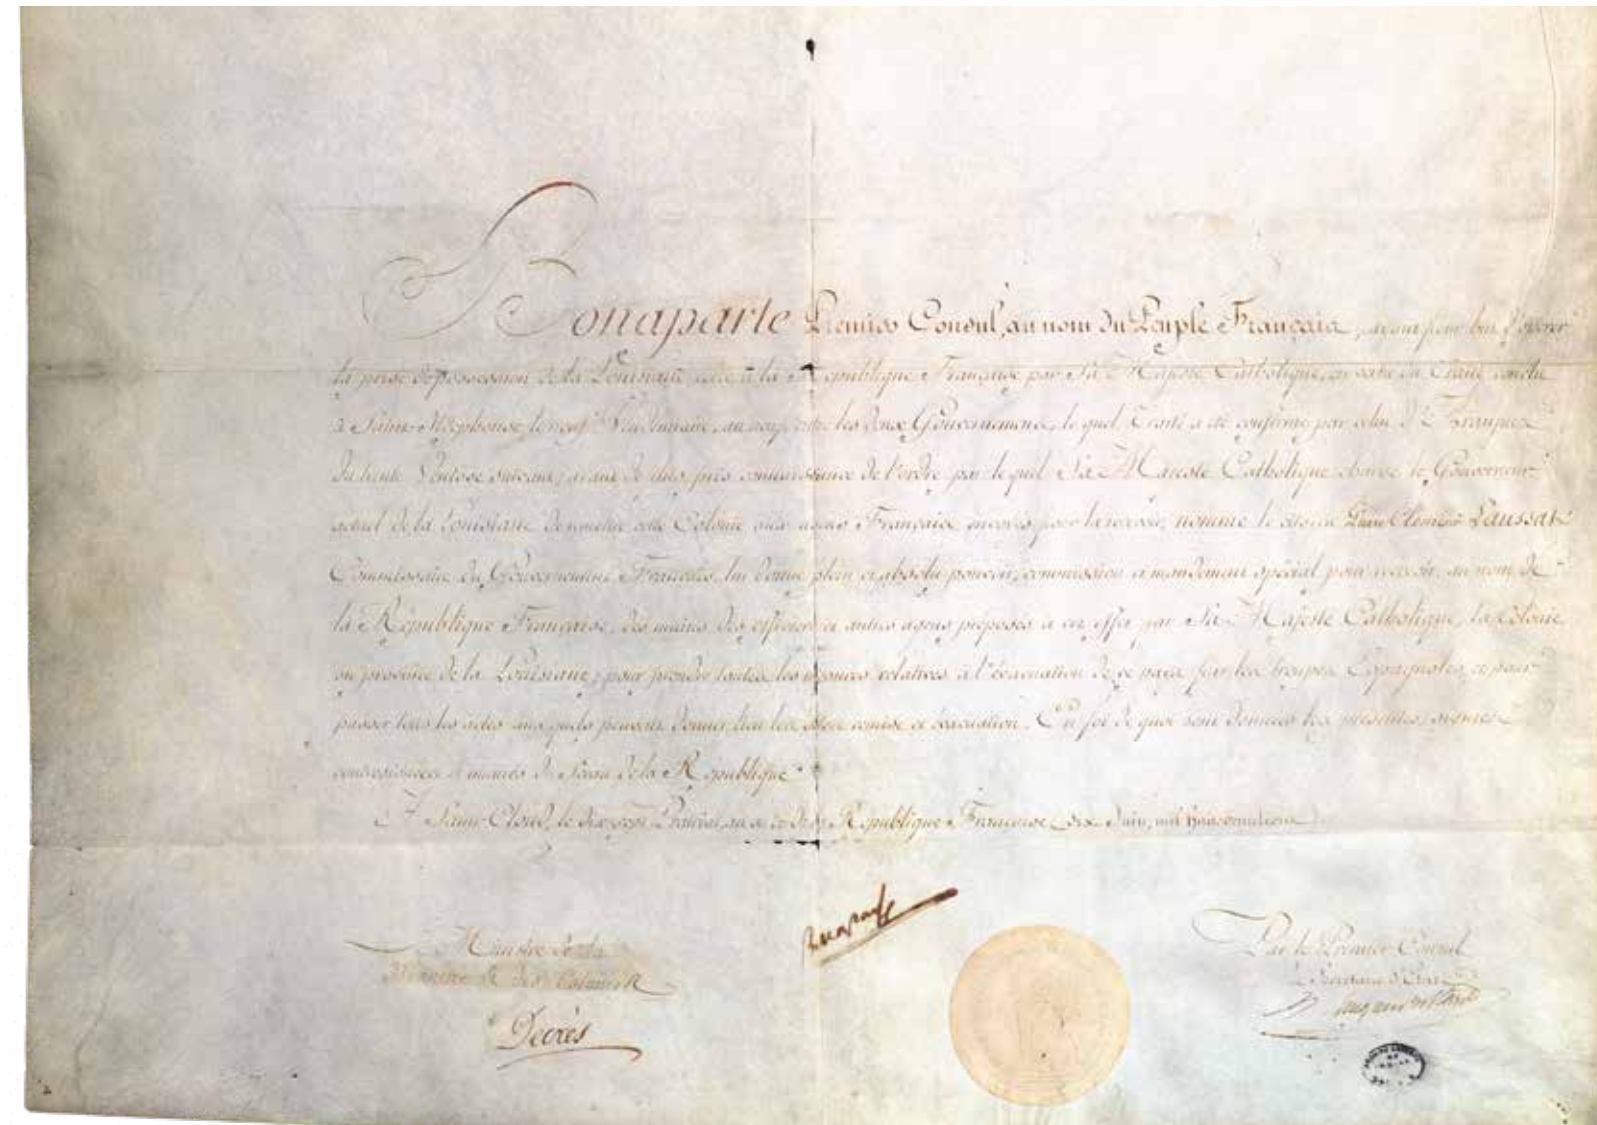 Bonaparte Premier Consul, au nom du Peuple Français, ayant pour but d'opérer
la prise de possession de la Louisiane cédée à la République Française par Sa Majesté Catholique, en vertu du Traité conclu
à Saint Ildephonse, le neuf Vendémiaire, an neuf entre les deux Gouvernemens, le quel Traité a été confirmé par celui
du trente Ventose suivant; ayant de plus pris connaissance de l'ordre par le quel Sa Majesté Catholique charge le Gouverneur
actuel de la Louisiane de remettre cette Colonie aux Français pour la recevoir, nomme le citoyen Pierre Clément Laussat
Commissaire du Gouvernement Français, lui donne plein et absolu pouvoir, commission et mandement spécial pour recevoir, au nom de
la République Française, des mains des officiers et autres agens préposés à cet effet par Sa Majesté Catholique, la Colonie
ou province de la Louisiane; pour prendre toutes les mesures relatives à l'évacuation de ce pays par les troupes Espagnoles, et pour
passer tous les actes aux quels peuvent donner lieu les dites remise et évacuation. En foi de quoi sont données les présentes, signées
contresignées et munies du Sceau de la République
A Saint-Cloud, le dix sept Prairial, an de la République Française (six Juin, mil huit cent trois).
Ministre de la
Marine et des Colonies
Decrès
Par le Premier Consul
Le Secrétaire d'Etat